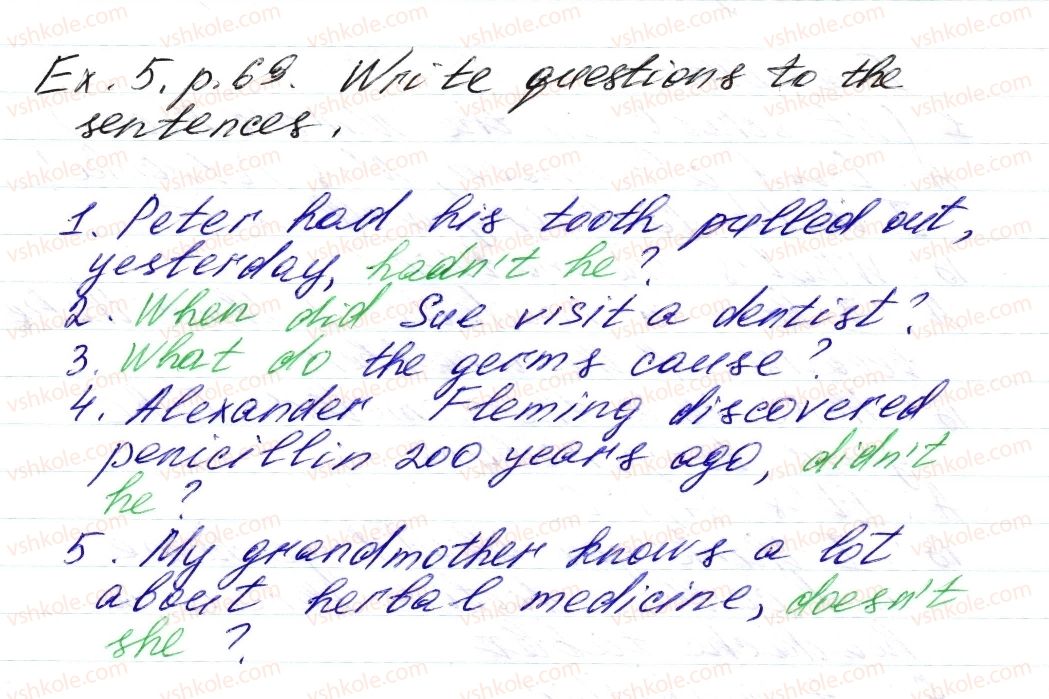 Ex. 5, p. 69. Write questions to the
sentences.
1. Peter had his tooth pulled out,
yesterday, hadn't he?
2. When did Sue visit a dentist?
3. What do the germs cause?
4. Alexander Fleming discovered
penicillin 200 years ago, didn't
he?
5. My grandmother knows a lot
about herbal medicine, doesn't
she?